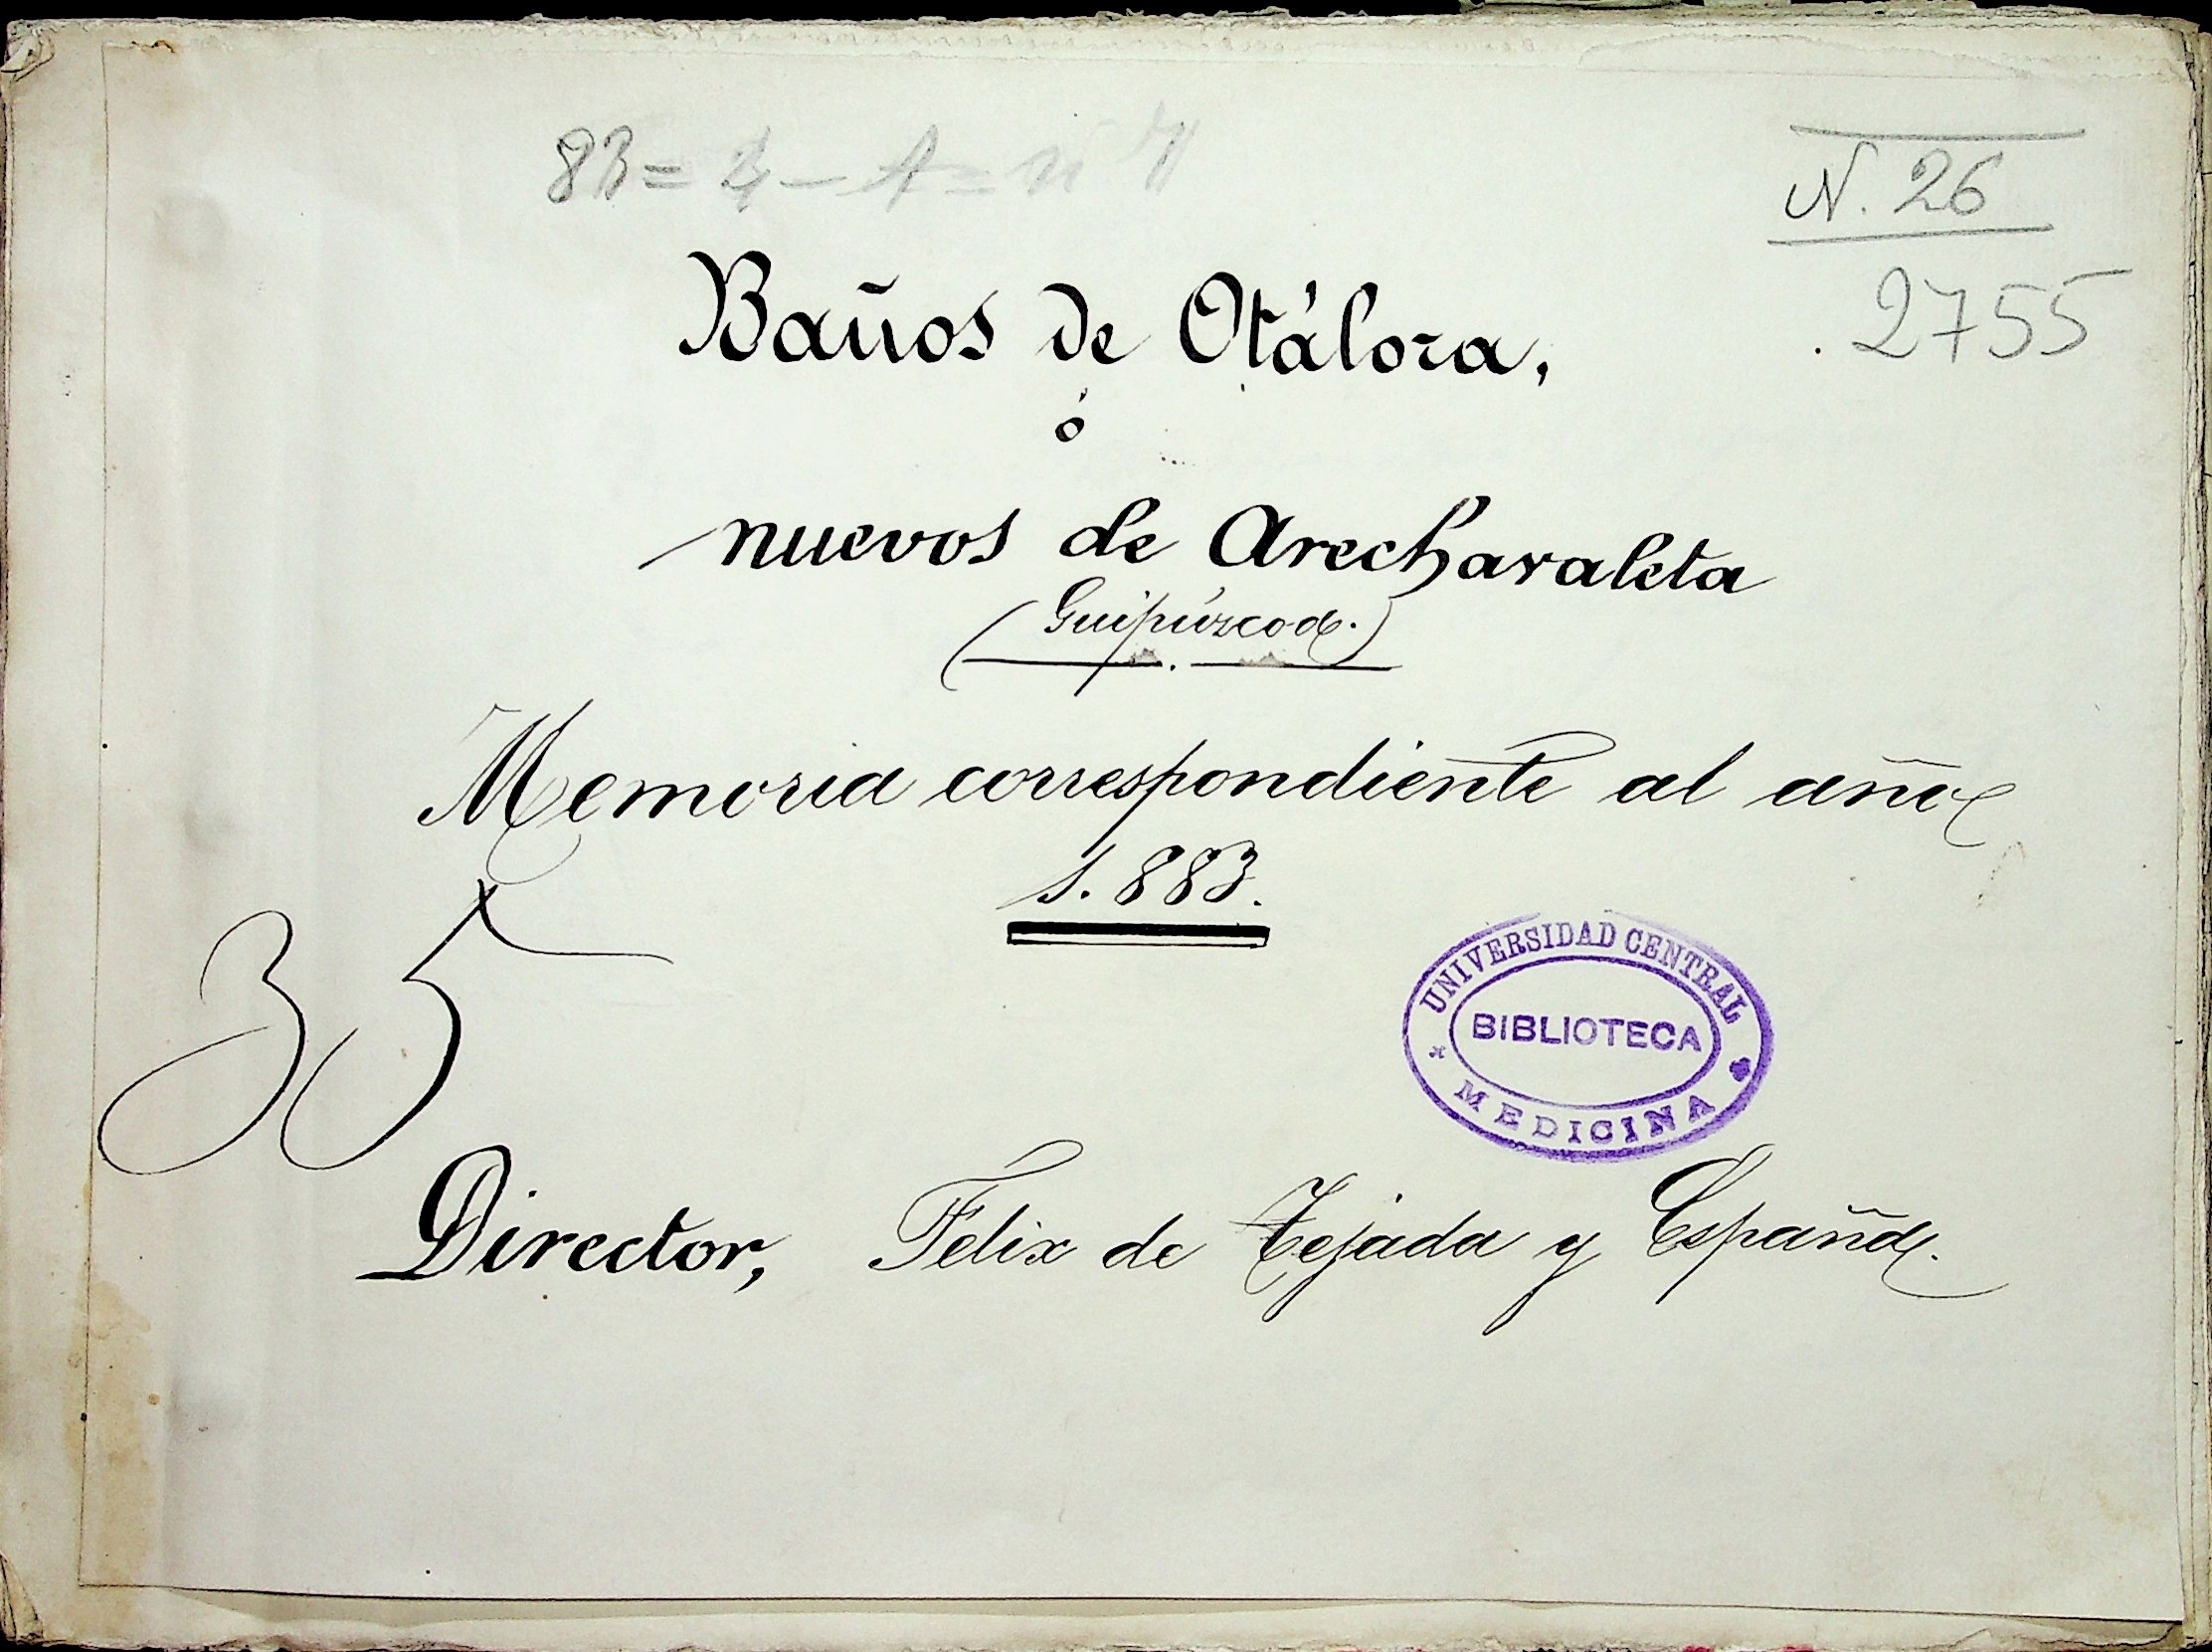 83 = 4 - A = nº
N. 26
2755
Baños de Otálora,
ó
nuevos de Arechavaleta
(Guipúzcoa.)
Memoria correspondiente al año
1.883.
35
UNIVERSIDAD CENTRAL
BIBLIOTECA
MEDICINA
Director, Felix de Tejada y España.